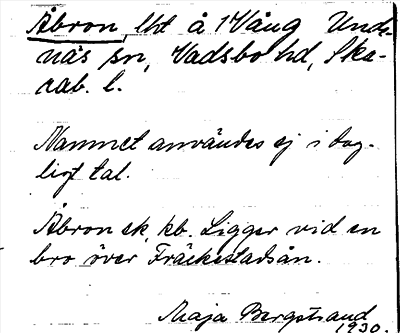 Åbron, lht å 1 Vång Unde-
näs sn, Vadsbo hd, Ska-
rab. l.
Namnet användes ej i dag-
ligt tal.
Åbron ek. kb. Ligger vid en
bro över Fräckestadsån.
Maja Bergstrand
1930.